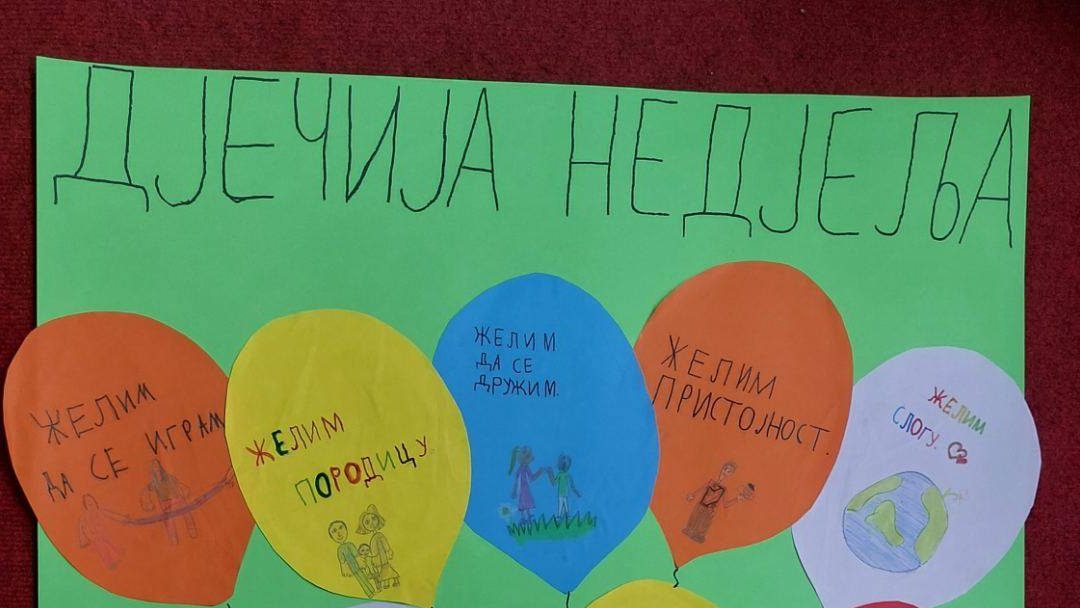 ДЈЕЧИЈА НЕДЈЕЉА
ЖЕЛИМ
ДА СЕ ИГРАМ
ЖЕЛИМ
ПОРОДИЦУ.
ЖЕЛИМ
ДА СЕ
ДРУЖИМ.
ЖЕЛИМ
ПРИСТОЈНОСТ.
ЖЕЛИМ
СЛОГУ.